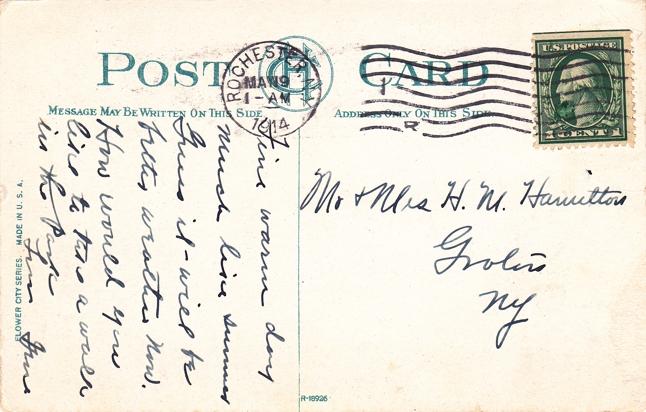 POST CARD
MESSAGE MAY BE WRITTEN ON THIS SIDE
ADDRESS ONLY ON THIS SIDE
ROCHESTER, N.Y.
MAY 9
1-AM
1914
U.S. POSTAGE
CENT
Fine warm day
Much like summer
Guess it will be
better weather now.
How would you
like to take a walk
in the Park
from
Mr & Mrs H. M. Hamilton
Groton
NY
FLOWER CITY SERIES. MADE IN U.S.A.
R-18926